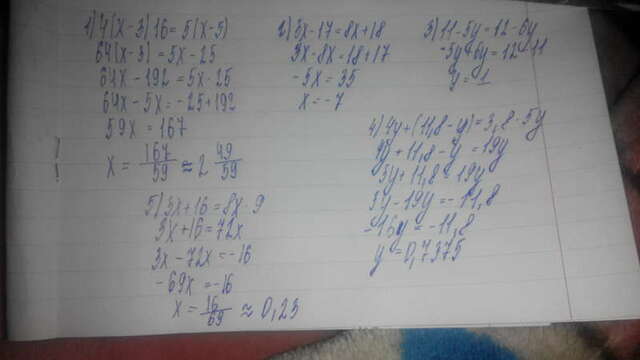 1) 4(x-3)16=5(x-5)
64(x-3)=5x-25
64x-192=5x-25
64x-5x=-25+192
59x=167
x=167/59≈2 49/59
2) 3x-17=8x+18
3x-8x=18+17
-5x=35
x=-7
3) 11-5y=12-6y
-5y+6y=12-11
y=1
4) 4y+(11,8-y)=3,8·5y
4y+11,8-y=19y
3y+11,8=19y
3y-19y=-11,8
-16y=-11,8
y=0,7375
5) 3x+16=8x·9
3x+16=72x
3x-72x=-16
-69x=-16
x=16/69≈0,23